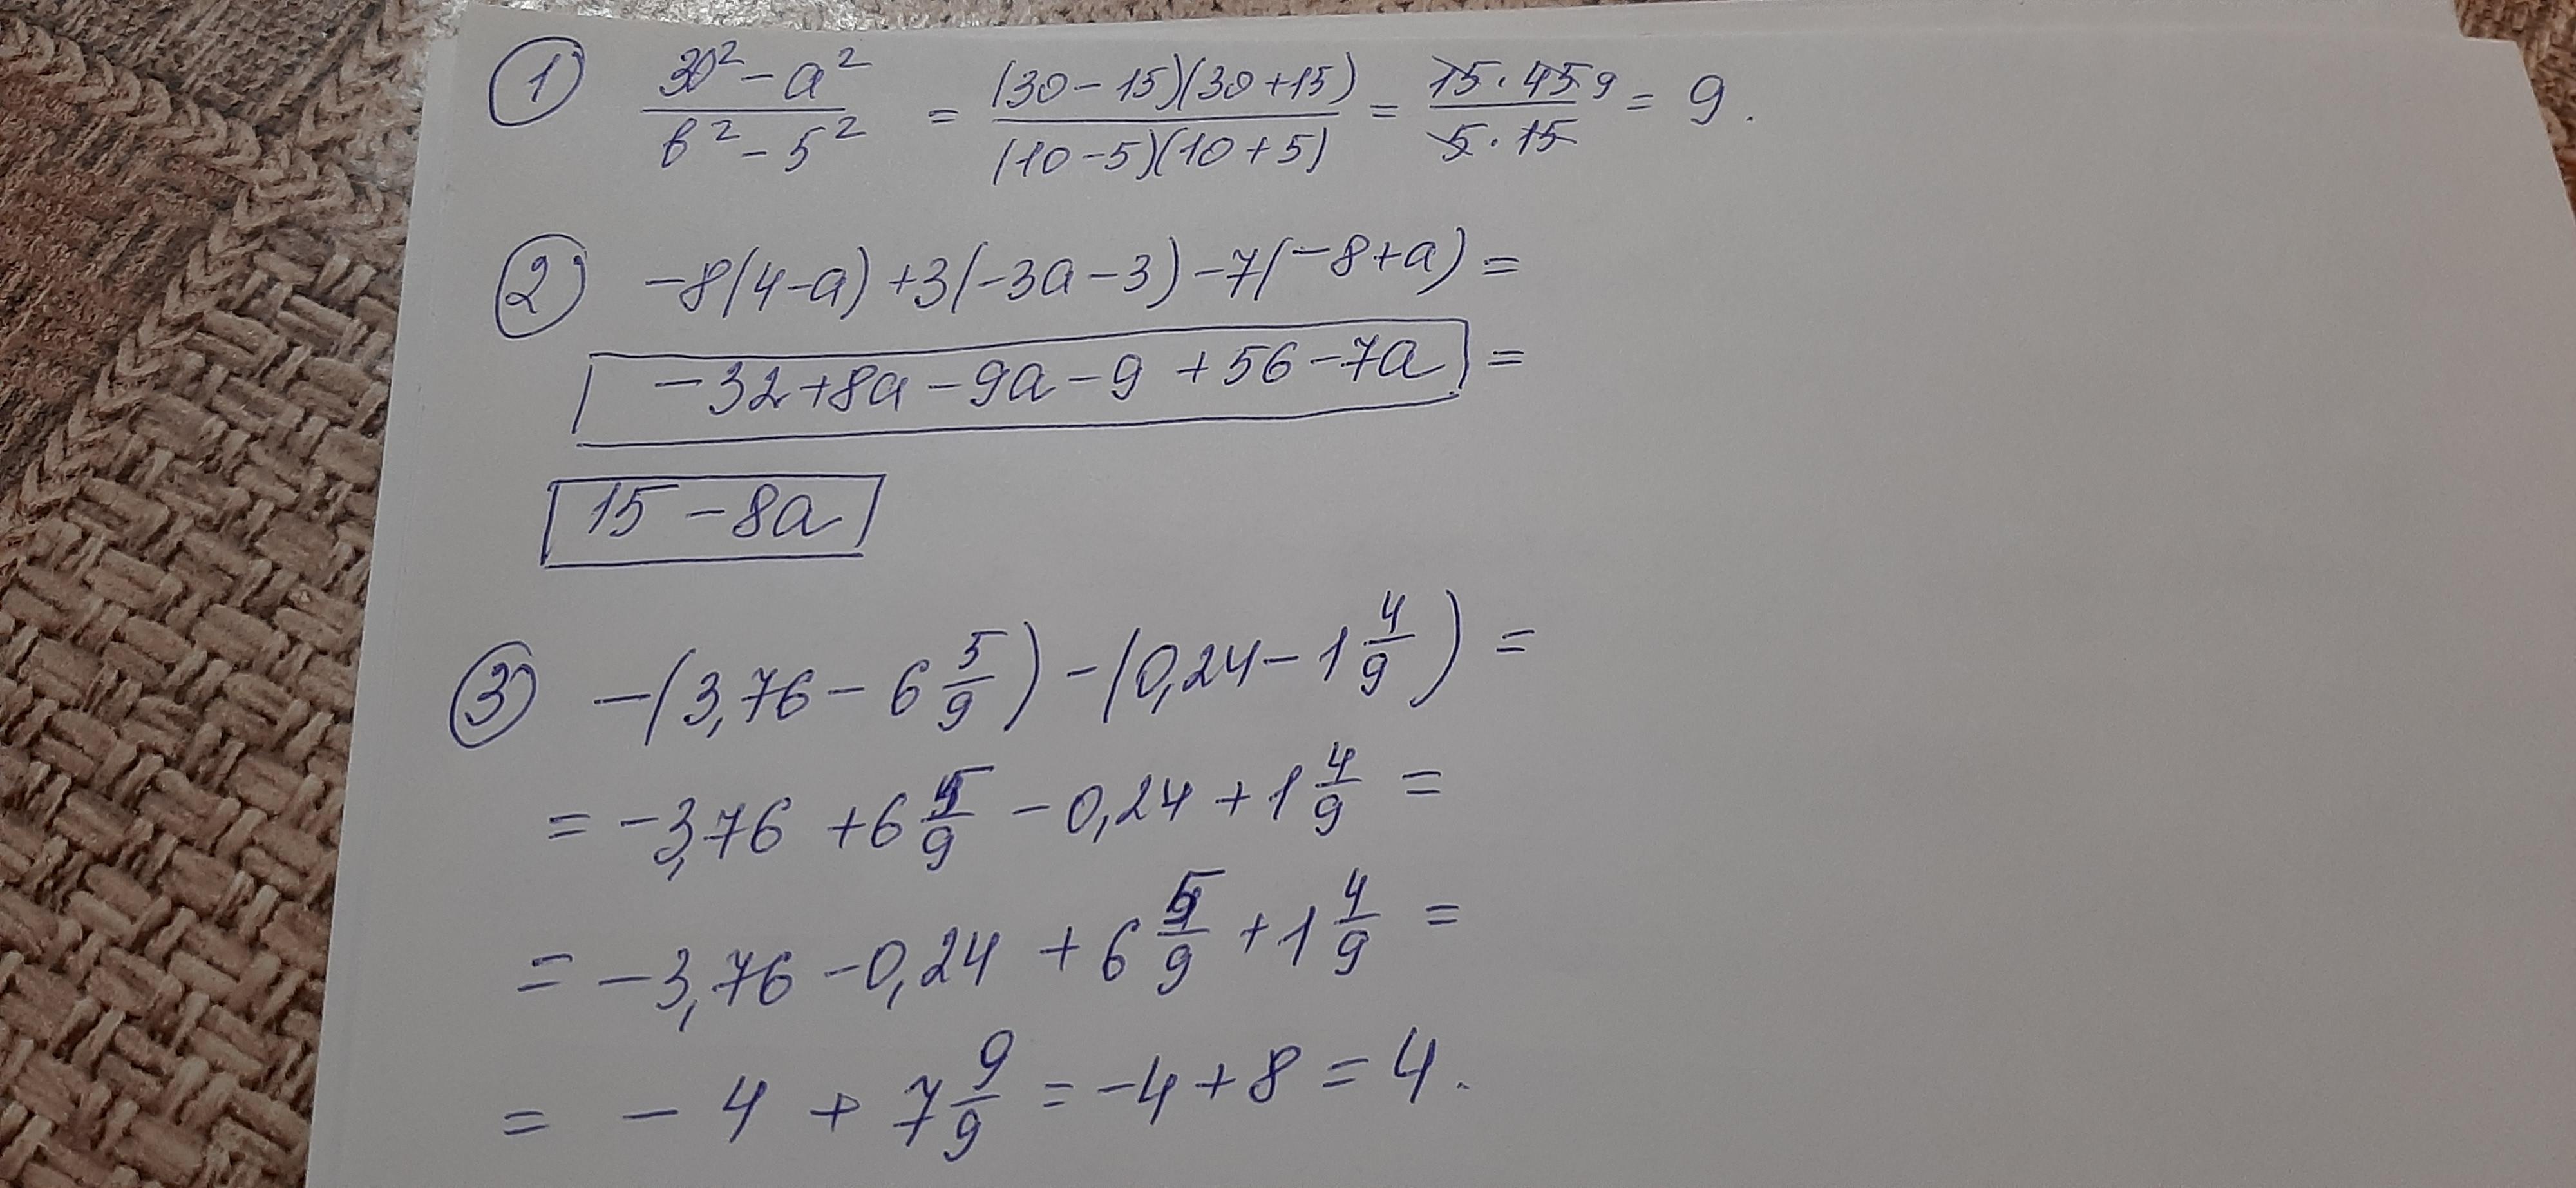 ① (30² - a²)/(b² - 5²) = ((30 - 15)(30 + 15))/((10 - 5)(10 + 5)) = (15 · 45 9)/(5 · 15) = 9.
② -8(4-a) +3(-3a-3) -7(-8+a) =
-32+8a-9a-9 +56-7a =
15 - 8a
③ -(3,76 - 6 5/9) - (0,24 - 1 4/9) =
= -3,76 + 6 5/9 - 0,24 + 1 4/9 =
= -3,76 - 0,24 + 6 5/9 + 1 4/9 =
= - 4 + 7 9/9 = -4 + 8 = 4.